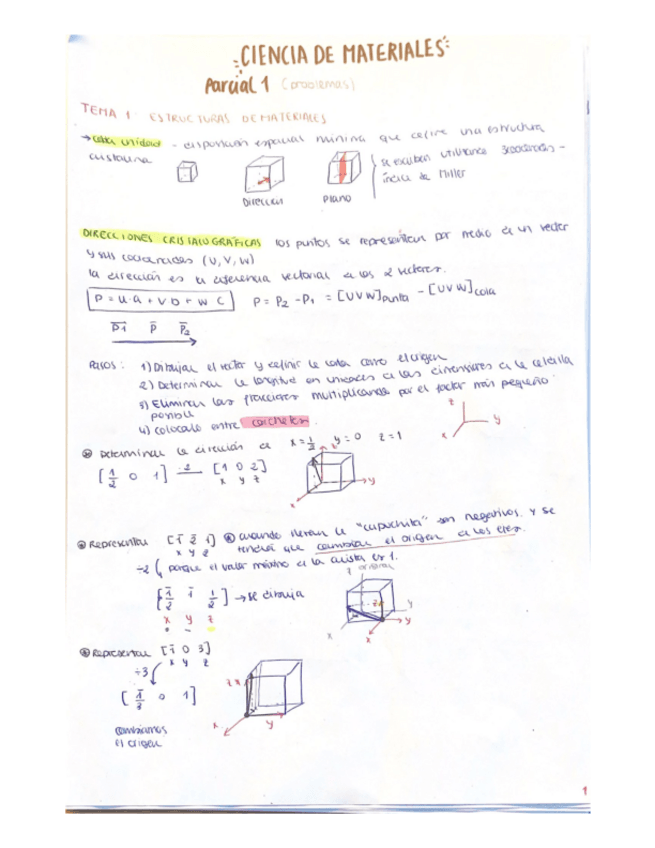 CIENCIA DE MATERIALES
Parcial 1 (problemas)
TEMA 1: ESTRUCTURAS DE MATERIALES
→ celda unidad - disposición espacial mínima que define una estructura
cristalina
Dirección
Plano
se escriben utilizando
índice de Miller
DIRECCIONES CRISTALOGRÁFICAS los puntos se representan por medio de un vector
y sus coordenadas (U, V, W)
la dirección es la diferencia vectorial de los 2 vectores.
P = U·a + V b + W c
P = P2 - P1 = [UVW]punta - [UVW]cola
P1 P P2
Pasos: 1) Dibujar el vector y definir la cola como el origen
2) Determinar la longitud en unidades de las dimensiones de la celdilla
3) Eliminar las fracciones multiplicando por el factor más pequeño
posible
4) colocalo entre corchetes.
z
y
x
Determinar la dirección de x = 1/2 y = 0 z = 1
[1/2 0 1] ·2 [1 0 2]
x y z
z
y
x
Representar [1̄ 2̄ 1] cuando llevan la "capuchita" son negativos. y se
x y z tendrá que cambiar el origen de los ejes.
÷2 porque el valor máximo de la arista es 1.
[1̄/2 1̄ 1/2] → se dibuja
x y z
z original
z
y
x
y
x
Representar [1̄ 0 3]
x y z
÷3
[1̄/3 0 1]
cambiamos
el origen
z
x
y
1